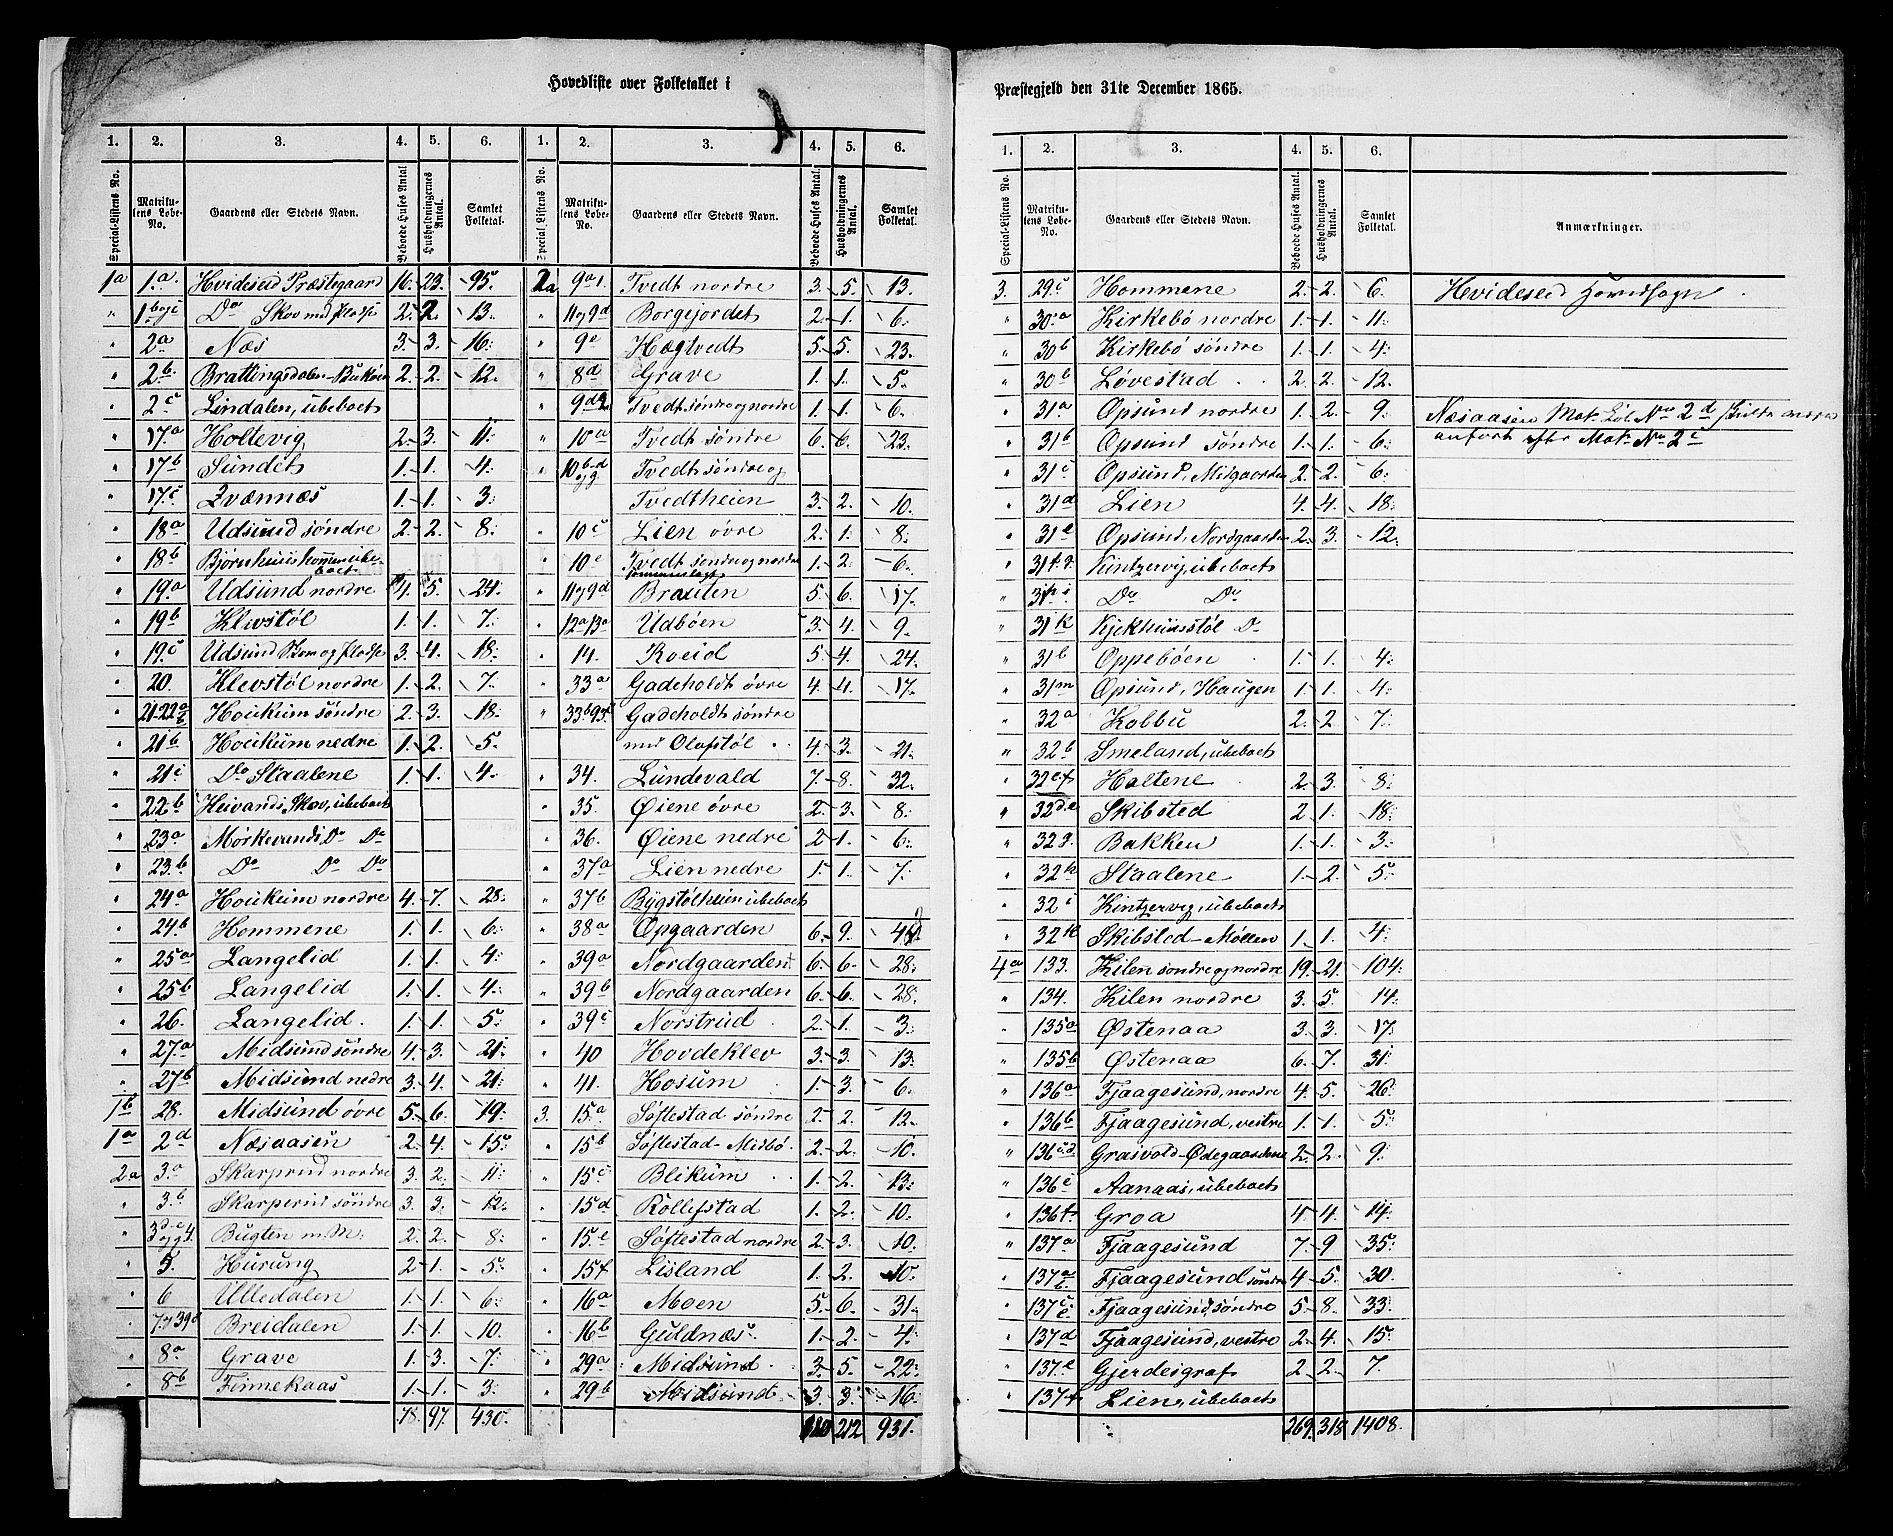 Hovedliste over Folketallet i
1. 2. 3. 4. 5. 6. 1. 2. 3. 4. 5. 6.
Special-Listens No. Matrikulens Løbe-No. Gaardens eller Stedets Navn. Beboede Huses Antal. Husholdningernes Antal. Samlet Folketal. Special Listens No. Matrikulens Løbe-No. Gaardens eller Stedets Navn. Beboede Huses Antal. Husholdningernes Antal. Samlet Folketal.
1a 1.a Hvideseid Præstegaard 16. 23. 95.
" 1 b og c Do Skov med Pladse 2. 2. 13.
" 2a Næs 3. 3. 16.
" 2.b Brattingsdalen-Bukøen 2. 2. 12.
" 2c Lindalen, ubeboet
" 17.a Holtevig 2. 3. 11.
" 17b Sundet 1. 1. 4.
" 17.c Kvænnæs 1. 1. 3.
" 18a Udsund søndre 2. 2. 8.
" 18b Bjørnhuuskommen ubeboet
" 19.a Udsund nordre 4. 5. 24.
" 19b Klevstøl 1. 1. 7.
" 19.c Udsund Hem og Pladse 3. 4. 18.
" 20. Klevstøl nordre 1. 2. 7.
" 21-22a Houkum søndre 2. 3. 18.
" 21b Houkum nedre 1. 2. 5.
" 21c Do Staalene 1. 1. 4.
" 22.b Heivands Skov, ubeboet
" 23a Mørkevands Do Do
" 23.b Do Do Do
" 24a Houkum nordre 4. 7. 28.
" 24b Hommene 1. 1. 6.
" 25a Langelid 1. 1. 4.
" 25b Langelid 1. 1. 4.
" 26. Langelid. 1. 1. 5.
" 27.a Midsund søndre 4. 3. 21.
" 27b Midsund nedre 3. 4. 21.
1b 28. Midsund øvre 5. 6. 19.
1a 2d Næsaasen 2. 4. 15.
2a 3.a Skarprud nordre 3. 2. 11.
" 3.b Skarperud søndre 3. 3. 12.
" 3 d-e og 4. Bugten m. M. 2. 2. 8.
" 5. Hurung 2. 1. 5.
" 6 Ulledalen 1. 1. 6.
" 7 og 39d Breidalen 1. 1. 10.
" 8a Grave 1. 3. 7.
" 8b Finnekaas 1. 1. 3.
78. 97. 430.
2a 9a1. Tvedt nordre 3. 5. 13.
" 11 og 9d Borgejordet 2. 1. 6.
" 9e Hægtvedt 5. 5. 23.
" 8d Grave 1. 1. 5.
" 9d Tvedt søndre og nordre 1. 1. 6.
" 10a Tvedt søndre 6. 6. 23.
" 10 b-d og g. Tvedt søndre og
Tvedtheien 3. 2. 10.
" 10c Lien øvre 2. 1. 8.
" 10e Tvedt søndre og nordre 1. 2. 6.
" 11 og 9d Brauten 5. 6. 17.
" 12a 13a Udbøen 3. 4. 9.
" 14. Roeid 5. 4. 24.
" 33a Gadeholdt øvre 4. 4. 17.
" 33b Gadeholdt søndre
med Olafstøl 4. 3. 21.
" 34. Lundevald 7. 8. 32.
" 35. Øiene øvre 2. 3. 8.
" 36. Øiene nedre 2. 1. 6.
" 37a Lien nedre 1. 1. 7.
" 37b Bygstølheien ubeboet
" 38a Opgaarden 6. 9.
" 39a Nordgaarden 6. 6. 28.
" 39b Nordgaarden 6. 6. 28.
" 39c Norstrud 2. 1. 3.
" 40 Hovdeklev 3. 3. 13.
" 41. Hosum 1. 3. 6.
3. 15a Søftestad søndre 2. 2. 12.
" 15b Søftestad-Midbø 2. 2. 10.
" 15c Blikum 1. 2. 13.
" 15d Rollefstad 1. 2. 10.
" 15e Søftestad nordre 2. 3. 10.
" 15f Lisland 1. 2. 10.
" 16a Moen 5. 6. 31.
" 16b Guldnæs. 1. 2. 4.
" 29a Midsund 3. 5. 22.
" 29b Midsund 3. 3. 16.
212 931.
Præstegjeld den 31te December 1865.
1. 2. 3. 4. 5. 6.
Special-Listens No. Matrikulens Løbe-No. Gaardens eller Stedets Navn. Beboede Huses Antal. Husholdningernes Antal. Samlet Folketal. Anmærkninger.
3. 29c Hommene 2. 2. 6. Hvideseid Hovedsogn.
" 30.a Kirkebø nordre 1. 1. 11.
" 30b Kirkebø søndre 1. 1. 4.
" 30b Løvestad 2. 2. 12.
" 31a Opsund nordre 1. 2. 9. Næsaasen Mat. Løb. No 2d skulde være
" 31b Opsund søndre 1. 1. 6. anført efter Mat. No 2c
" 31c Opsund, Midgaarden 2. 2. 6.
" 31d Lien 4. 4. 18.
" 31e Opsund, Nordgaarden 2. 3. 12.
" 31f.g. Kintzervig, ubeboet
" 31h i Do Do
" 31k Kjekhuusstøl Do
" 31b Oppebøen 1. 1. 4.
" 31m Opsund, Haugen 1. 1. 4.
" 32a Kolbu 2. 2. 7.
" 32b Smeland, ubeboet
" 32c.f Haltene 2. 3. 8.
" 32d.e Skibsted 2 1. 18.
" 32g. Bakken 1. 1. 3.
" 32h Staalene 1. 2. 5.
" 32i Kintzervig, ubeboet
" 32k Skibsted-Møllen 1. 1. 4.
4a 133. Kilen søndre og nordre 19. 21. 104.
" 134. Kilen nordre 3. 5. 14.
" 135a Østenaa 3. 3. 17.
" 135b Østenaa 6. 7. 31.
" 136a Fjaagesund, nordre 4. 5. 26.
" 136b Fjaagesund, vestre 1. 1. 5.
" 136c.d. Graivold-Ødegaardene 2. 2. 9.
" 136e Aanaas, ubeboet
" 136f Groa 4. 4. 14.
" 137a Fjaagesund 7. 9 35.
" 137a b Fjaagesund søndre 4. 5. 30.
" 137c Fjaagesund søndre 5. 8. 33.
" 137d Fjaagesund, vestre 2. 4. 15.
" 137.e Gjerdeigraf 2. 2. 7.
" 137f Lien, ubeboet
269. 318 1408.